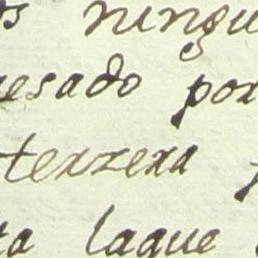 os ningu
resado por
terzera p
ta laque